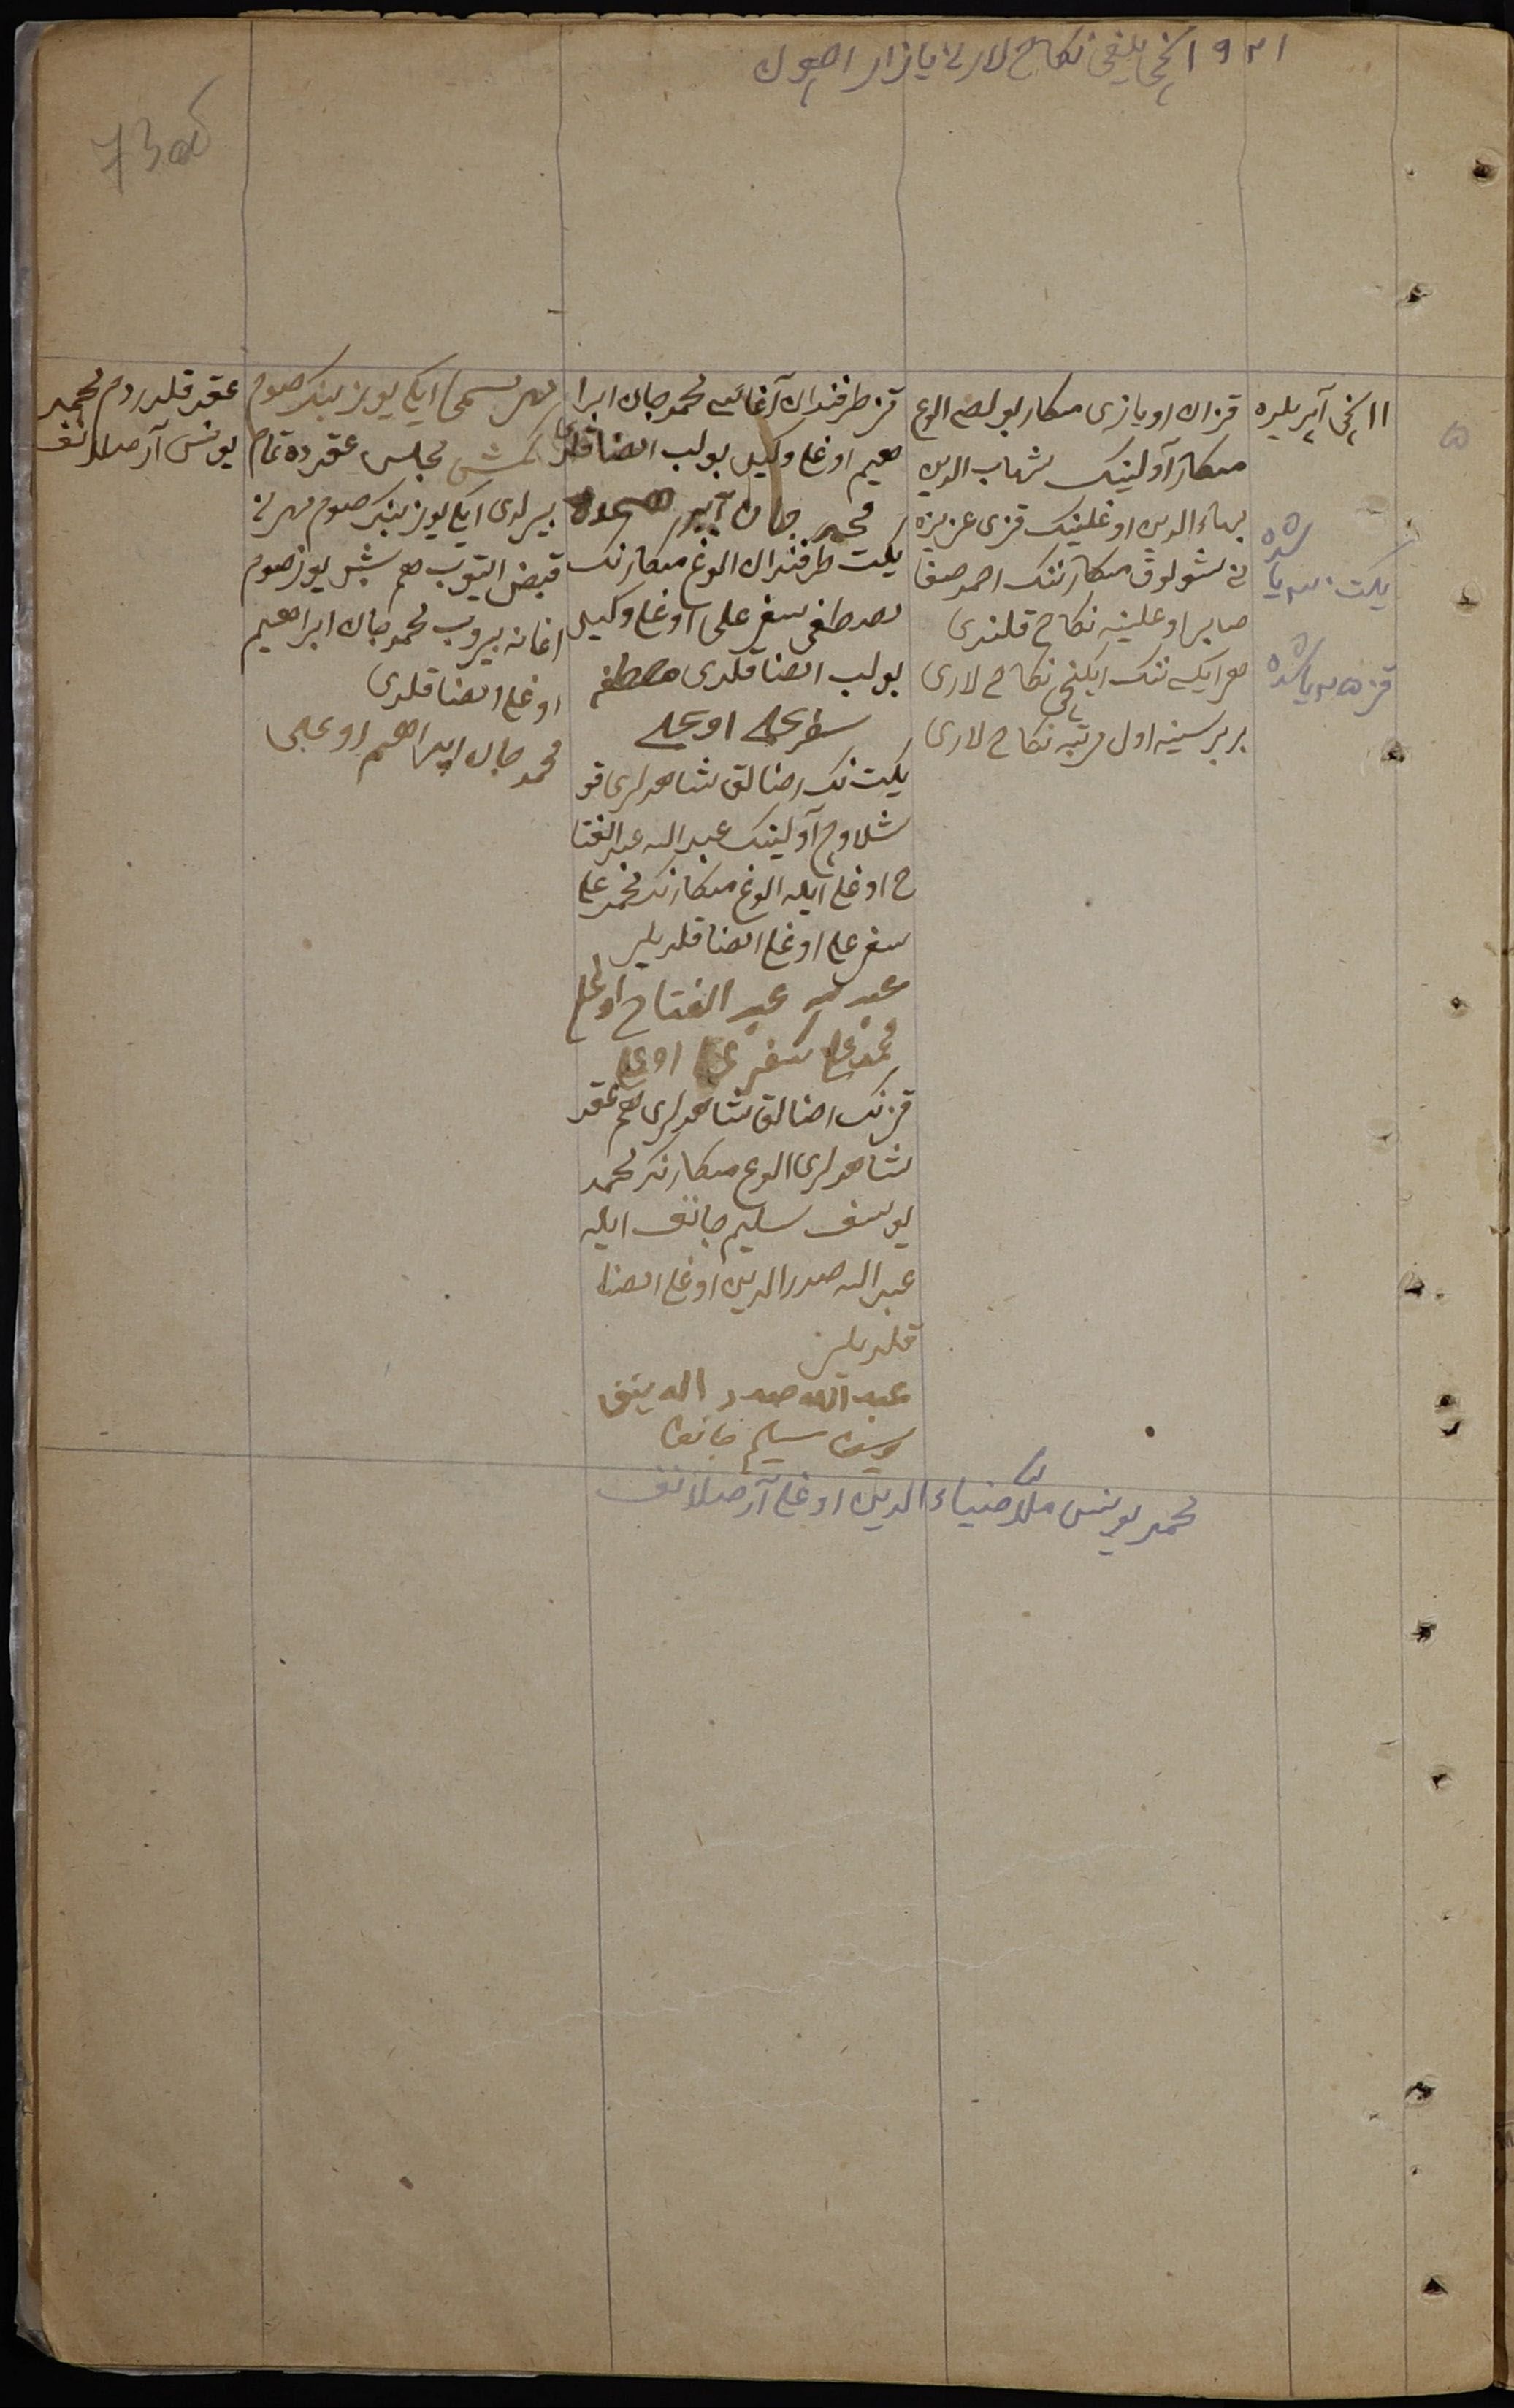 ١٩٢١ نچی یلغی نکاح لارنی یازار اصول
73 об
۵
١١ نچی آپریلده
یکت ... یاشده
قز ... یاشده
قزان اویازی منکار بولصی الوغ
منکار آولینک شهاب الدین
بهاءالدین اوغلینک قزی عزیزه
نی شولوق منکارننک احمدصفا
صابر اوغلینه نکاح قلندی
هر ایکسی ننک ایکنچی نکاح لاری
بر برسینه اول مرتبه نکاح لاری
قز طرفندان آغاسی محمدجان ابرا
هیم اوغلی وکیل بولب امضا قلدی
محمد جان
یکت طرفندان الوغ منکارنک
مصطفی سفرعلی اوغلی وکیل
بولب امضا قلدی مصطفی
سفرعلی اوغلی
یکت نک رضالق شاهدلری قو
شلاوچ آولینک عبدالله عبدالفتا
ح اوغلی ایله الوغ منکارنک محمدعلی
سفرعلی اوغلی امضا قلدیلر
عبدالله عبدالفتاح اوغلی
محمدعلی سفرعلی اوغلی
قزنک رضالق شاهدلری هم عقد
شاهدلری الوغ منکارنک محمد
یوسف سلیم جانف ایله
عبدالله صدرالدین اوغلی امضا
قلدیلر
عبدالله صدرالدینف
یوسف سلیم جانف
مهر مسمی ایکی یوز بینک صوم
مجلس عقدده تمام
بیرلدی ایکی یوز بینک صوم مهرنی
قبض ایتوب هم بش یوز صوم
اعانه بیروب محمدجان ابراهیم
اوغلی امضا قلدی
محمد جان ابراهیم اوغلی
عقد قلدردم محمد
یونس آرصلانف
محمد یونس ملا ضیاءالدین اوغلی آرصلانف